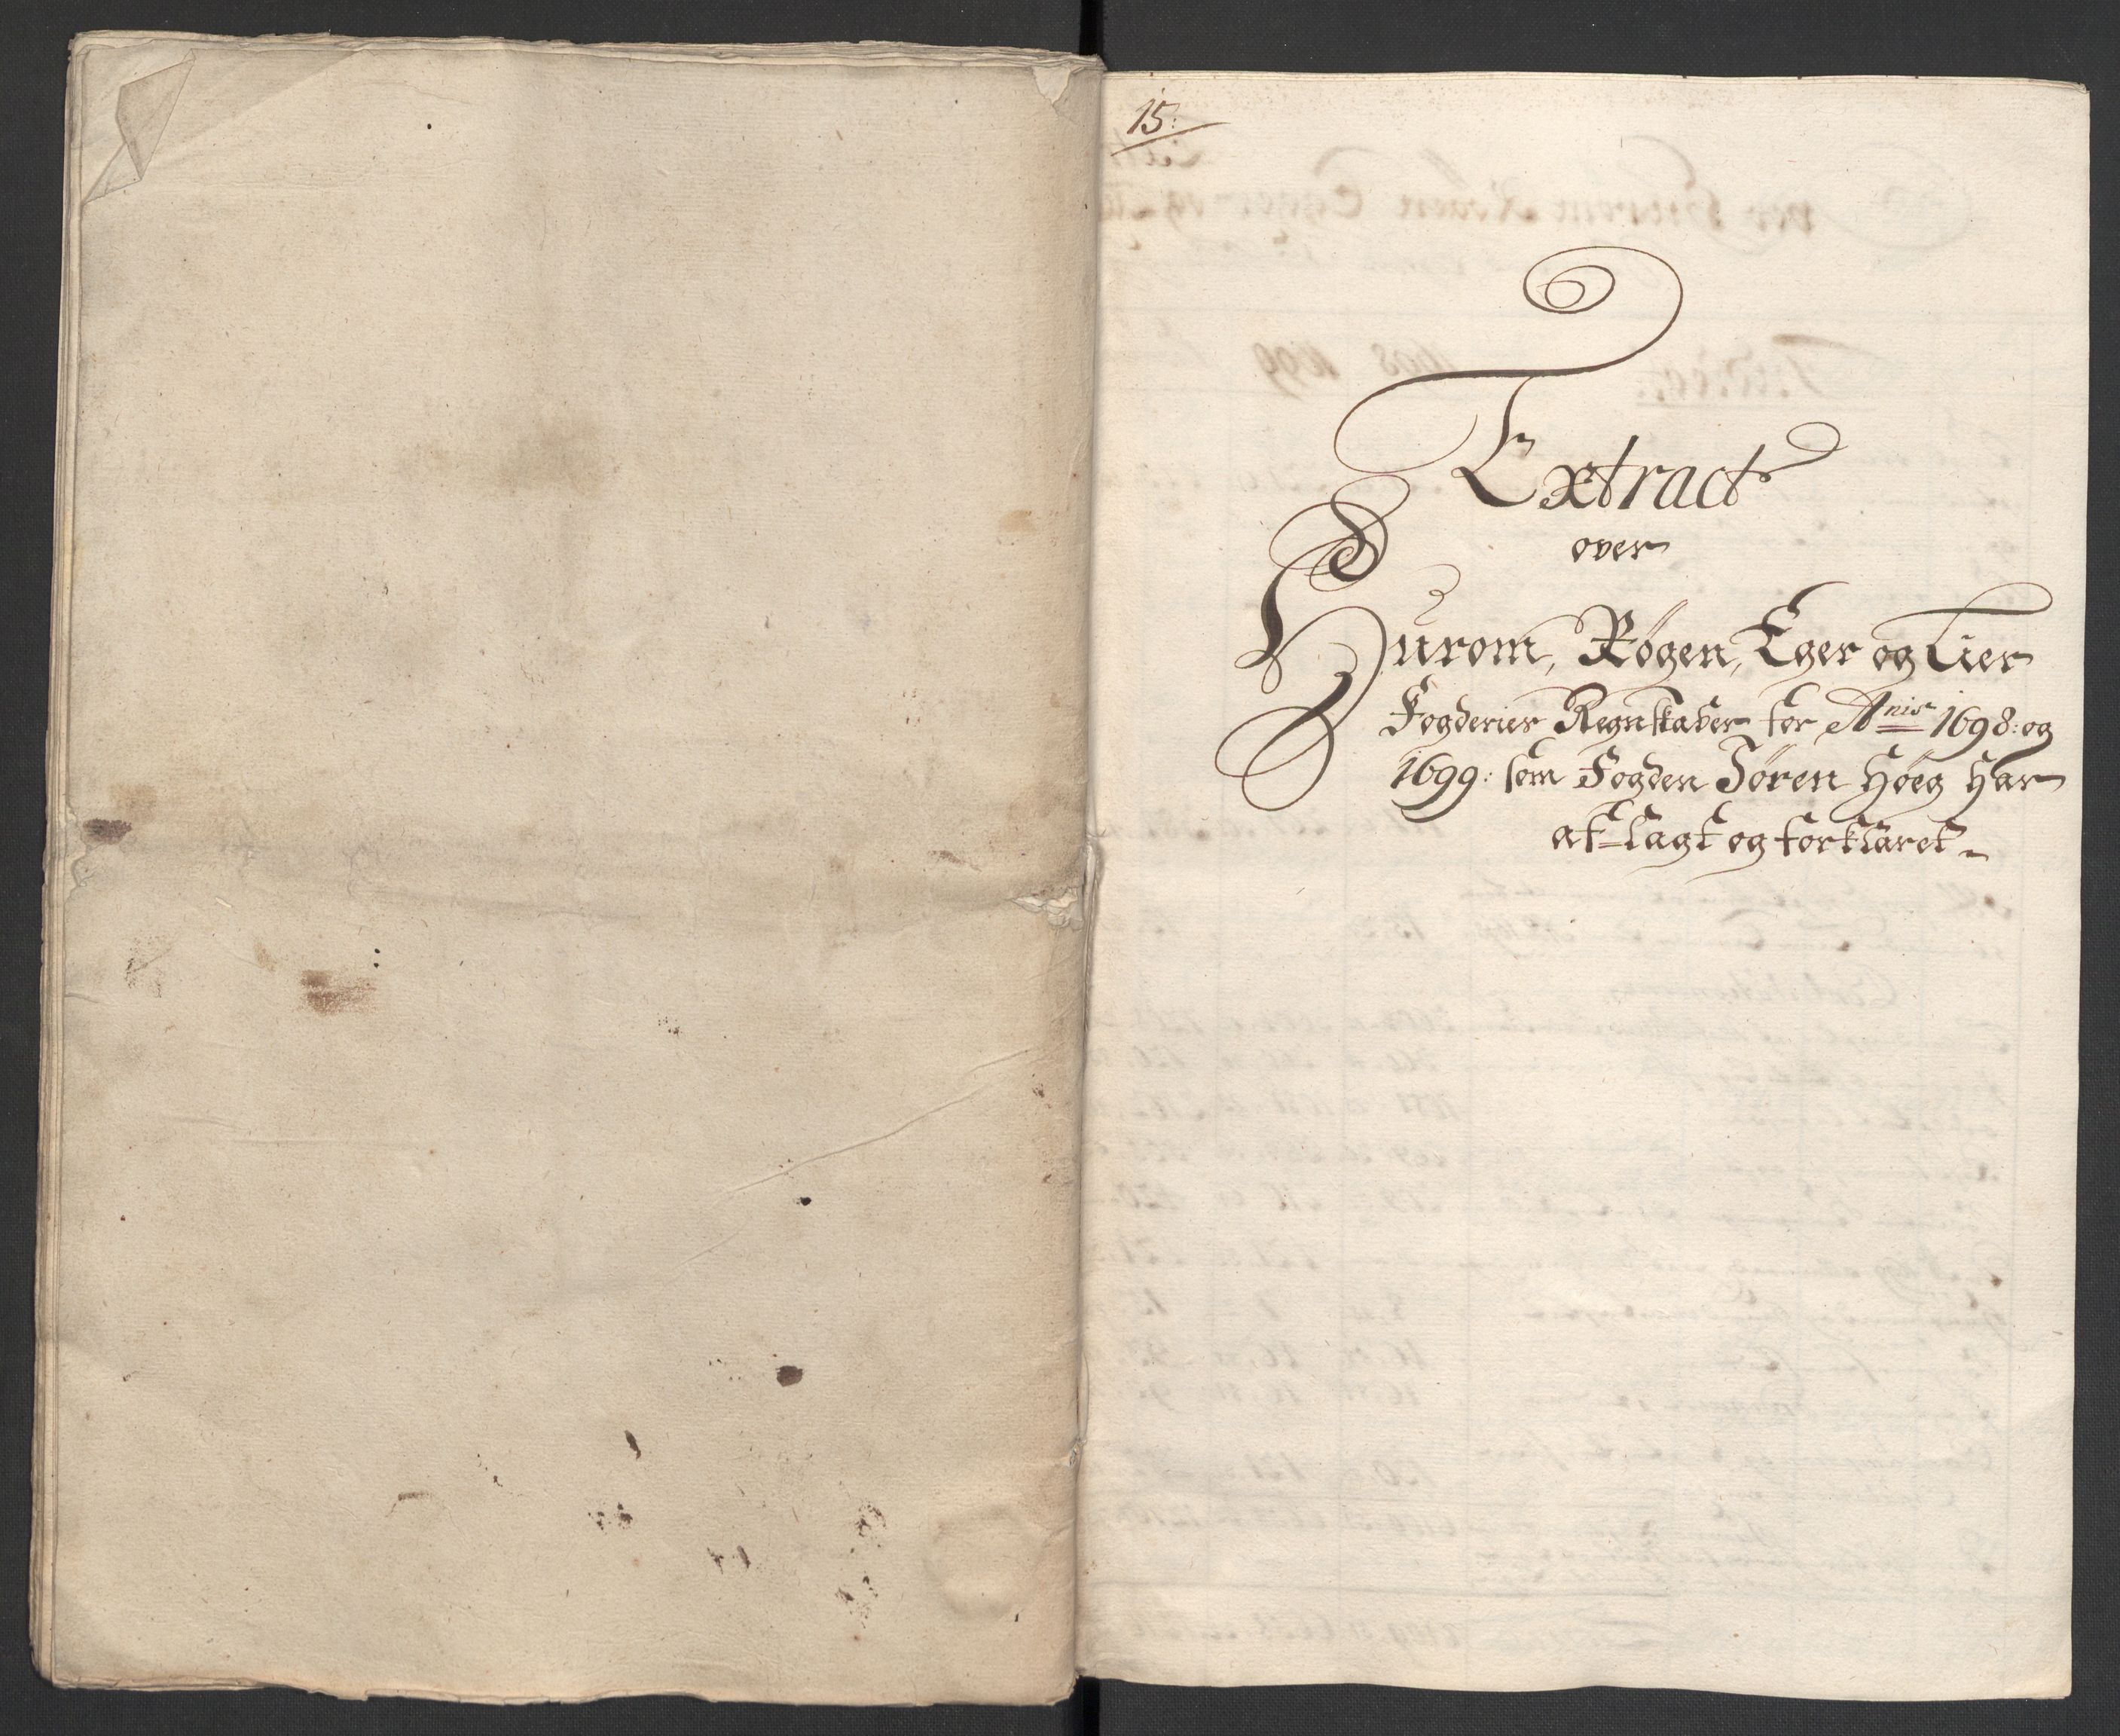 15:
Extract
over
Hurom, Røgen, Eger og Lier
Fogderies Regnskaber for Anis 1698: og
1699: som Fogden Søren Høeg Har
af-lagt og forklaret